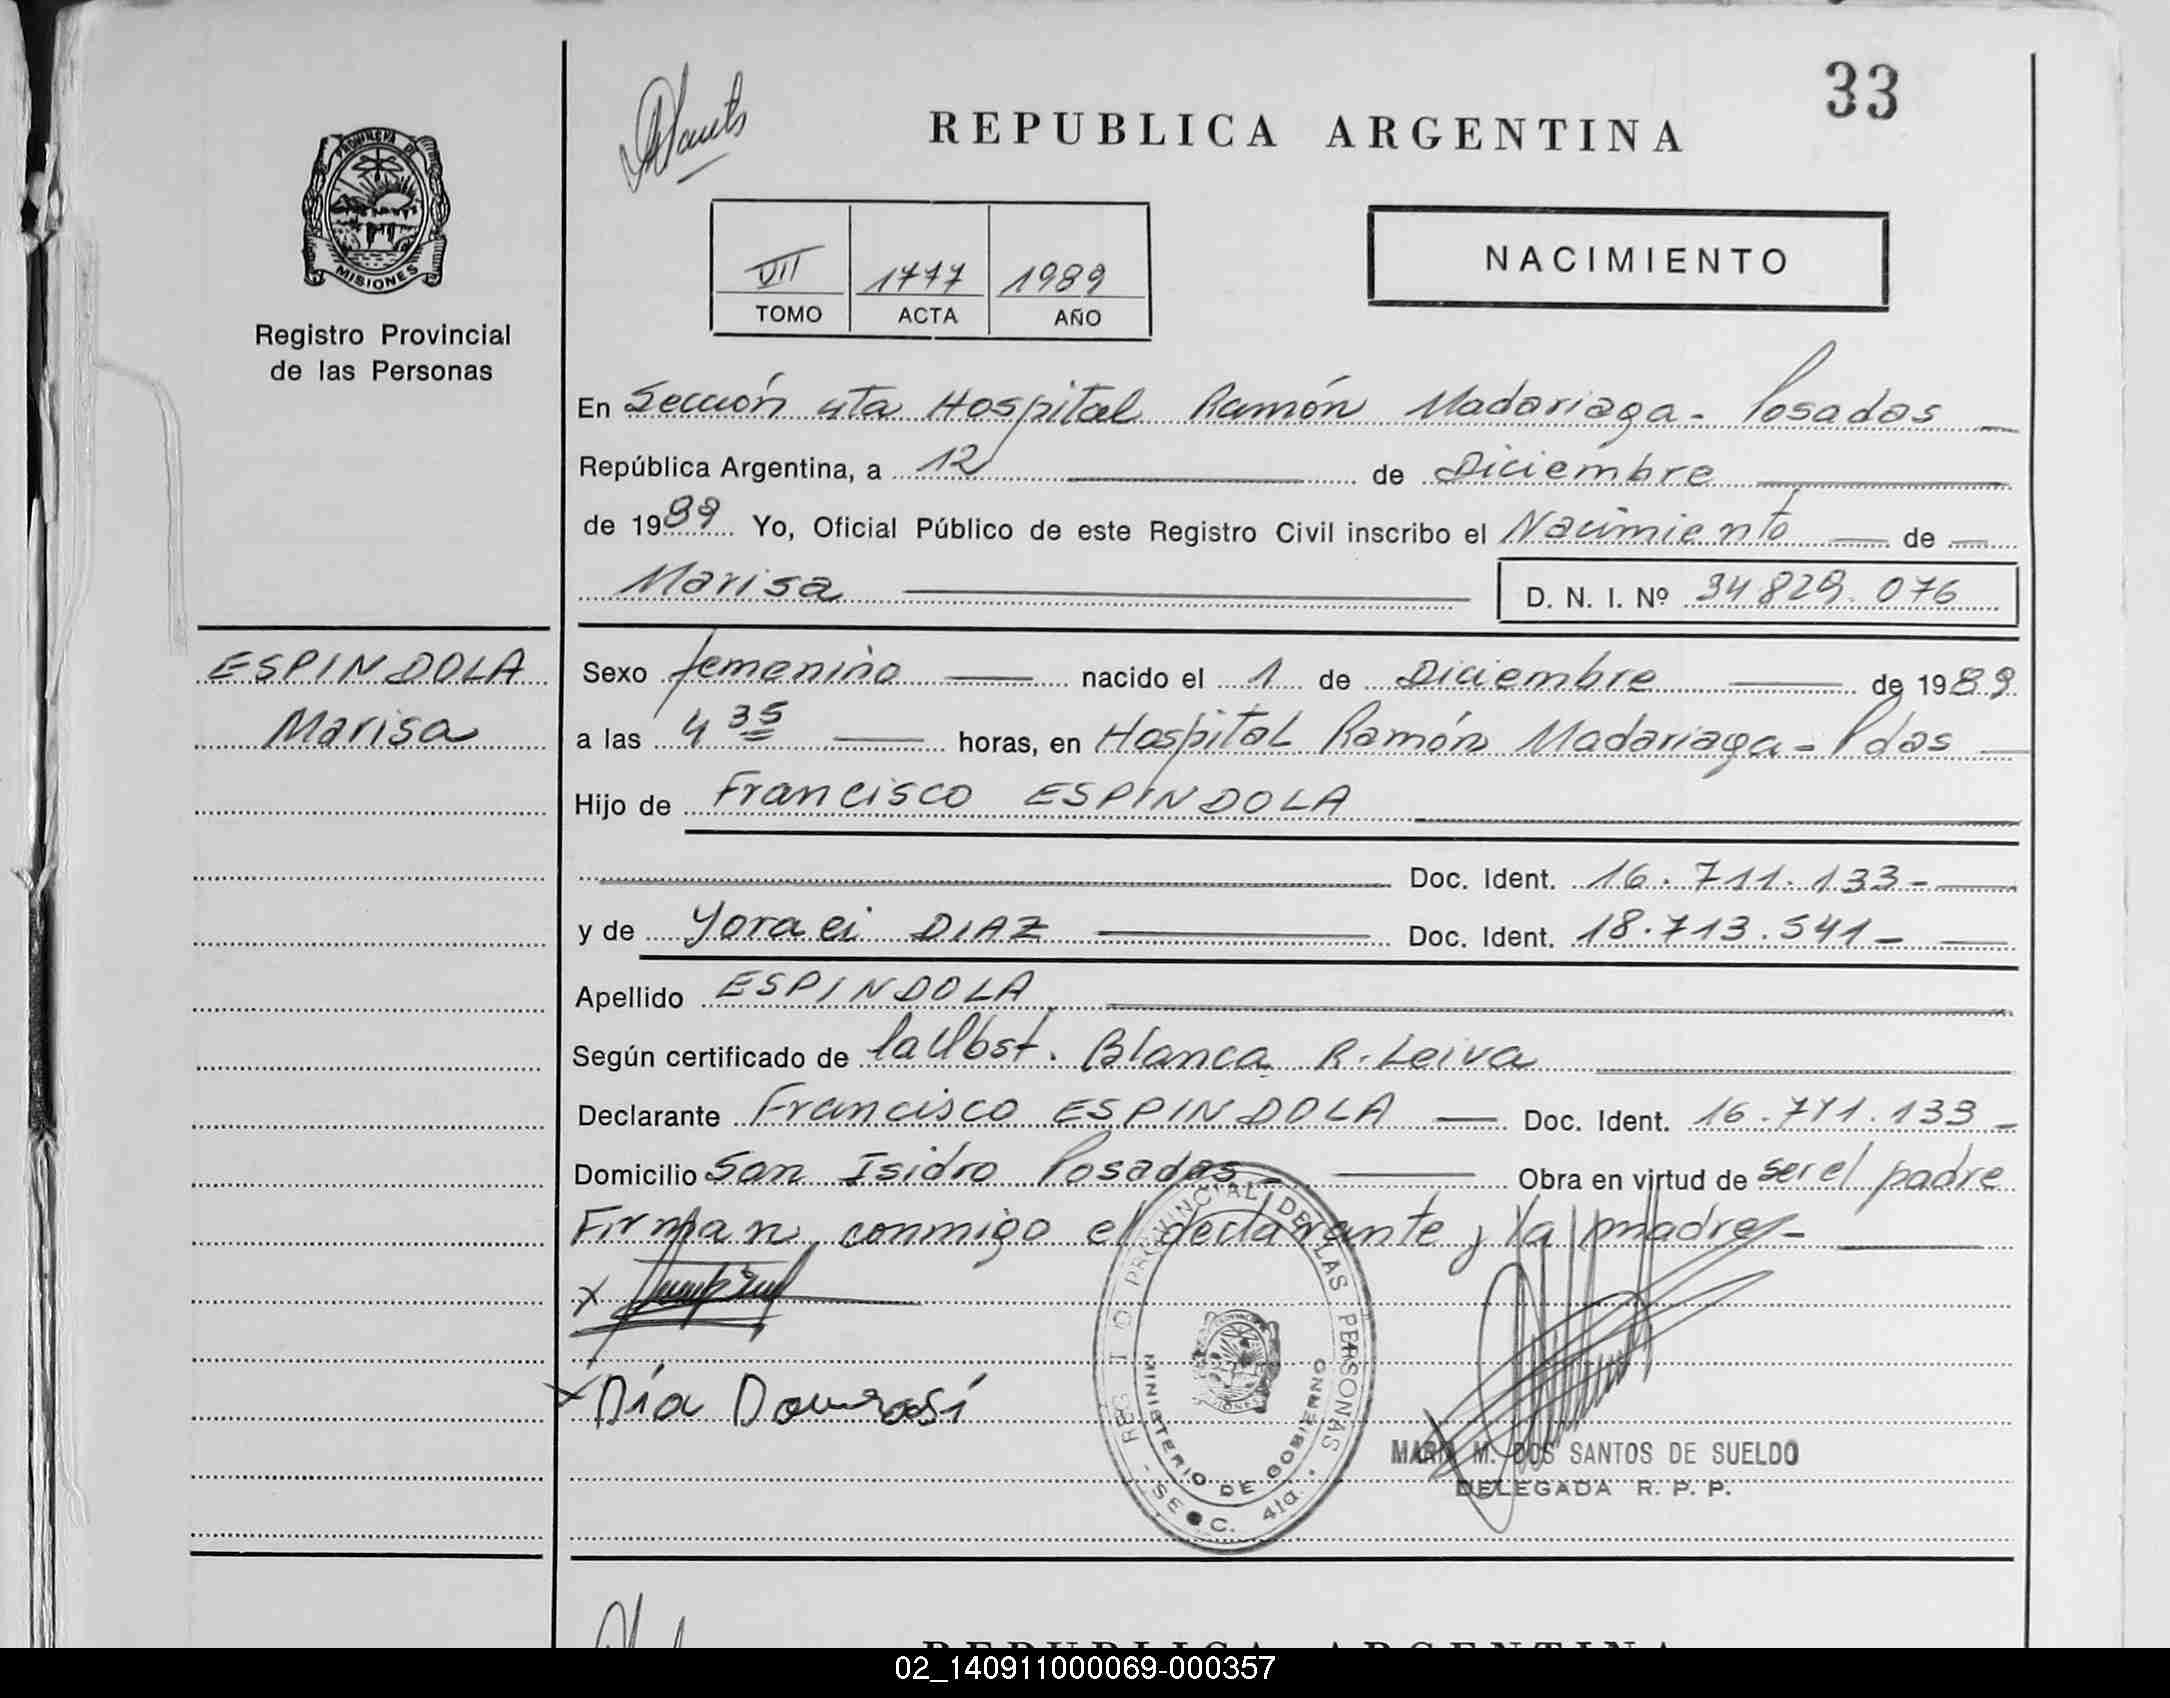 33
REPUBLICA ARGENTINA
PROVINCIA DE
MISIONES
Registro Provincial
de las Personas
VII 1777 1989
TOMO ACTA AÑO
NACIMIENTO
En Sección 4ta Hospital Ramón Madariaga - Posadas
República Argentina, a 12 de Diciembre
de 1989 Yo, Oficial Público de este Registro Civil inscribo el Nacimiento de
Marisa D. N. I. Nº 34 829. 076
ESPINDOLA
Marisa
Sexo femenino nacido el 1 de Diciembre de 1989
a las 4 35 horas, en Hospital Ramón Madariaga - Pdas
Hijo de Francisco ESPINDOLA
Doc. Ident. 16. 711. 133 -
y de Yoraei DIAZ Doc. Ident. 18.713.541 -
Apellido ESPINDOLA
Según certificado de la Obst. Blanca R. Leiva
Declarante Francisco ESPINDOLA Doc. Ident. 16.711.133 -
Domicilio San Isidro Posadas - Obra en virtud de ser el padre
Firman conmigo el declarante y la madre -
x
x Día
REG I O PROVINCIAL DE LAS PERSONAS
MINISTERIO DE GOBIERNO
- SECC. 4ta. -
M. DOS SANTOS DE SUELDO
DELEGADA R. P. P.
REPUBLICA ARGENTINA
02_140911000069-000357